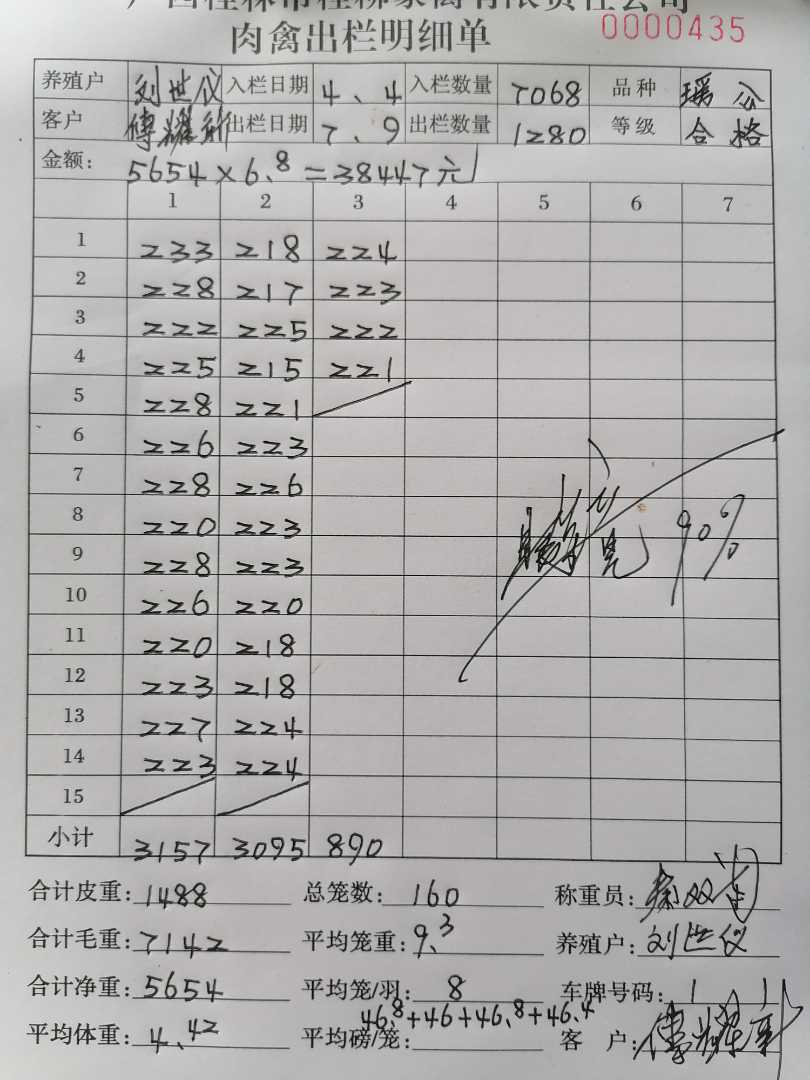 广西桂林市桂柳家禽有限责任公司
肉禽出栏明细单 0000435
养殖户 刘世仪 入栏日期 4、4 入栏数量 7068 品种 瑶公
客户 傅耀 出栏日期 7、9 出栏数量 1280 等级 合格
金额: 5654×6.8=38447元
1 2 3 4 5 6 7
1 233 218 224
2 228 217 223
3 222 225 222
4 225 215 221
5 228 221
6 226 223
7 228 226
8 220 223
9 228 223
10 226 220
11 220 218
12 223 218
13 227 224
14 223 224
15
90%
小计 3157 3095 890
合计皮重: 1488 总笼数: 160 称重员:
合计毛重: 7142 平均笼重: 9.3 养殖户: 刘世仪
合计净重: 5654 平均笼/羽: 8 车牌号码:
平均体重: 4.42 平均磅/笼: 46.8+46+46.8+46.4 客 户: 傅耀